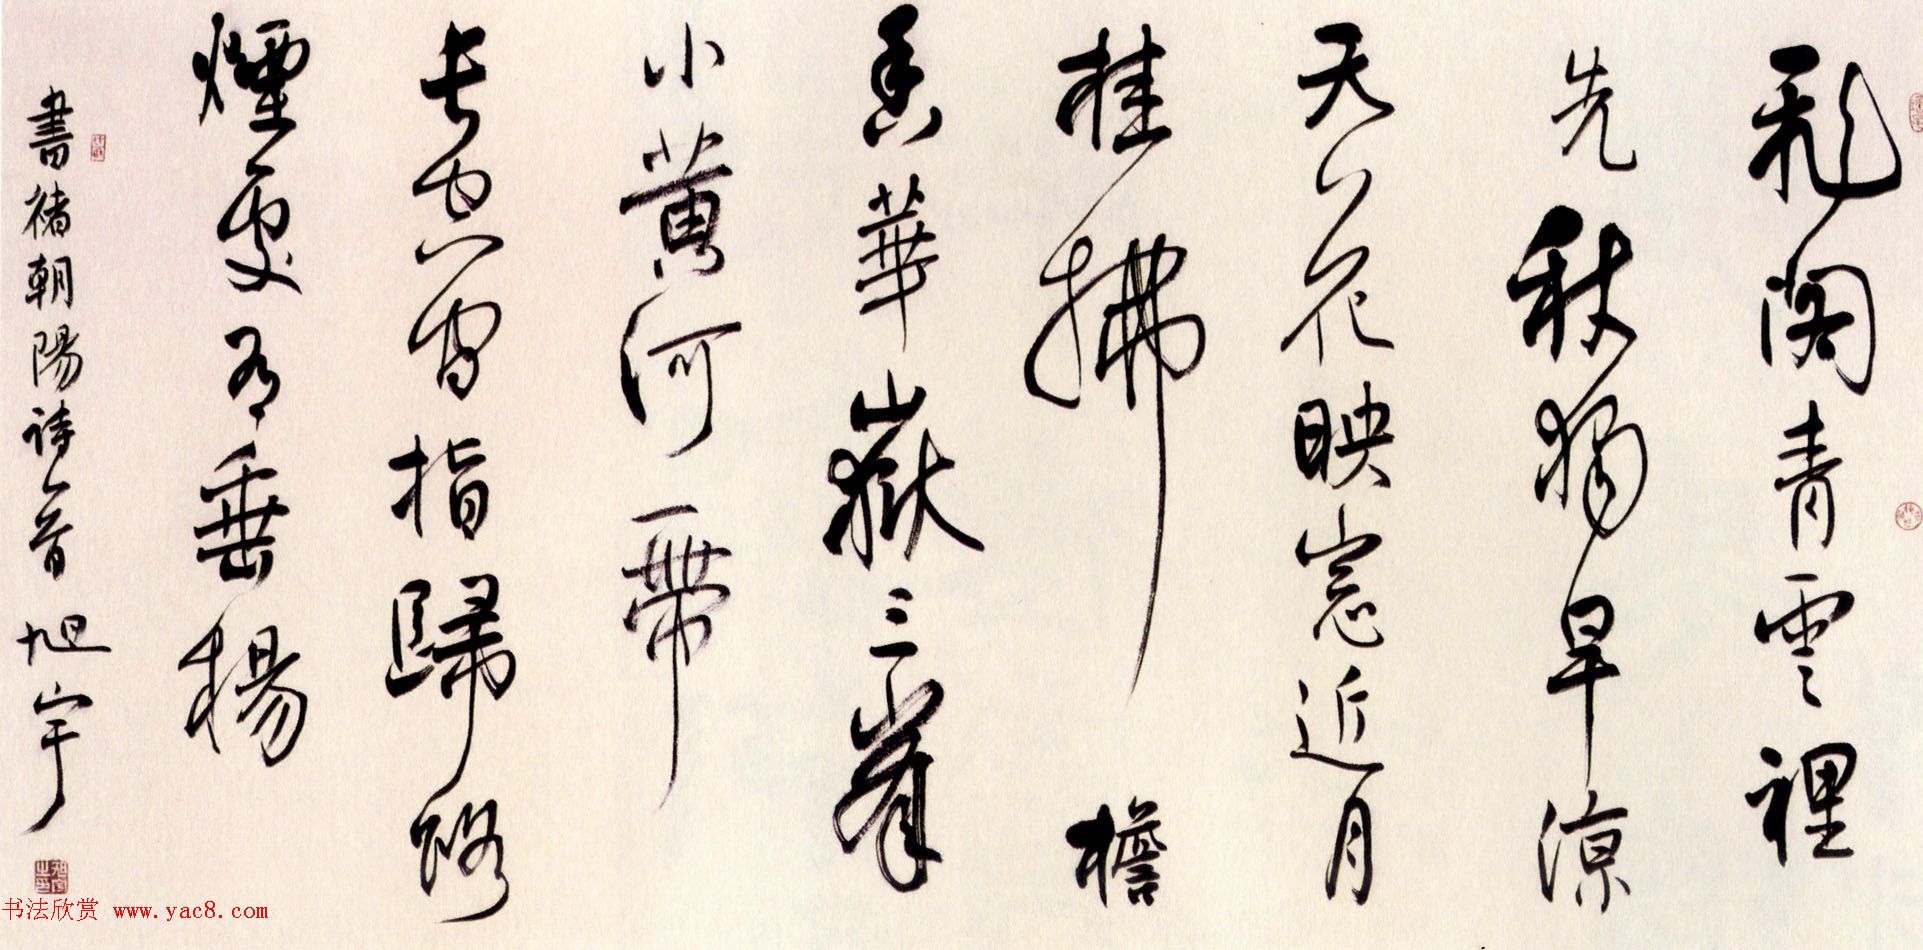 飛閣青雲裡
先秋獨早涼
天花映窓近月
桂拂檐
香華嶽三峯
小黃河一帶
長空間指歸路
煙處有垂楊
書褚朝陽詩一首 旭宇
书法欣赏 www.yac8.com